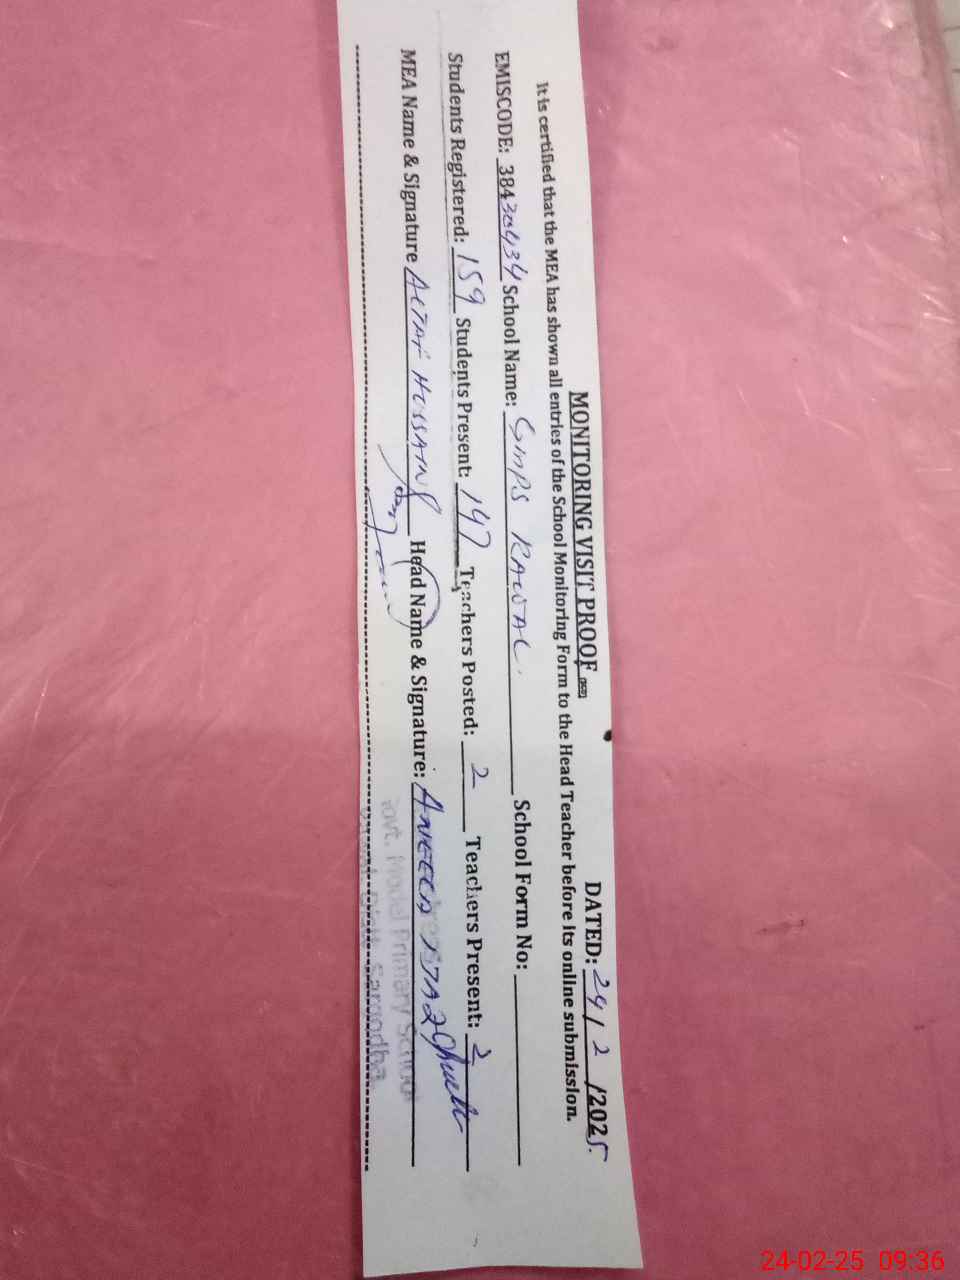 MONITORING VISIT PROOF DATED: 24/2/2025
It is certified that the MEA has shown all entries of the School Monitoring Form to the Head Teacher before its online submission.
EMISCODE: 38430434 School Name: GMPS RAWAL School Form No:
Students Registered: 159 Students Present: 147 Teachers Posted: 2 Teachers Present: 2
MEA Name & Signature ALTAF HUSSAIN Head Name & Signature:
Govt. Model Primary School
Sargodha
24-02-25 09:36